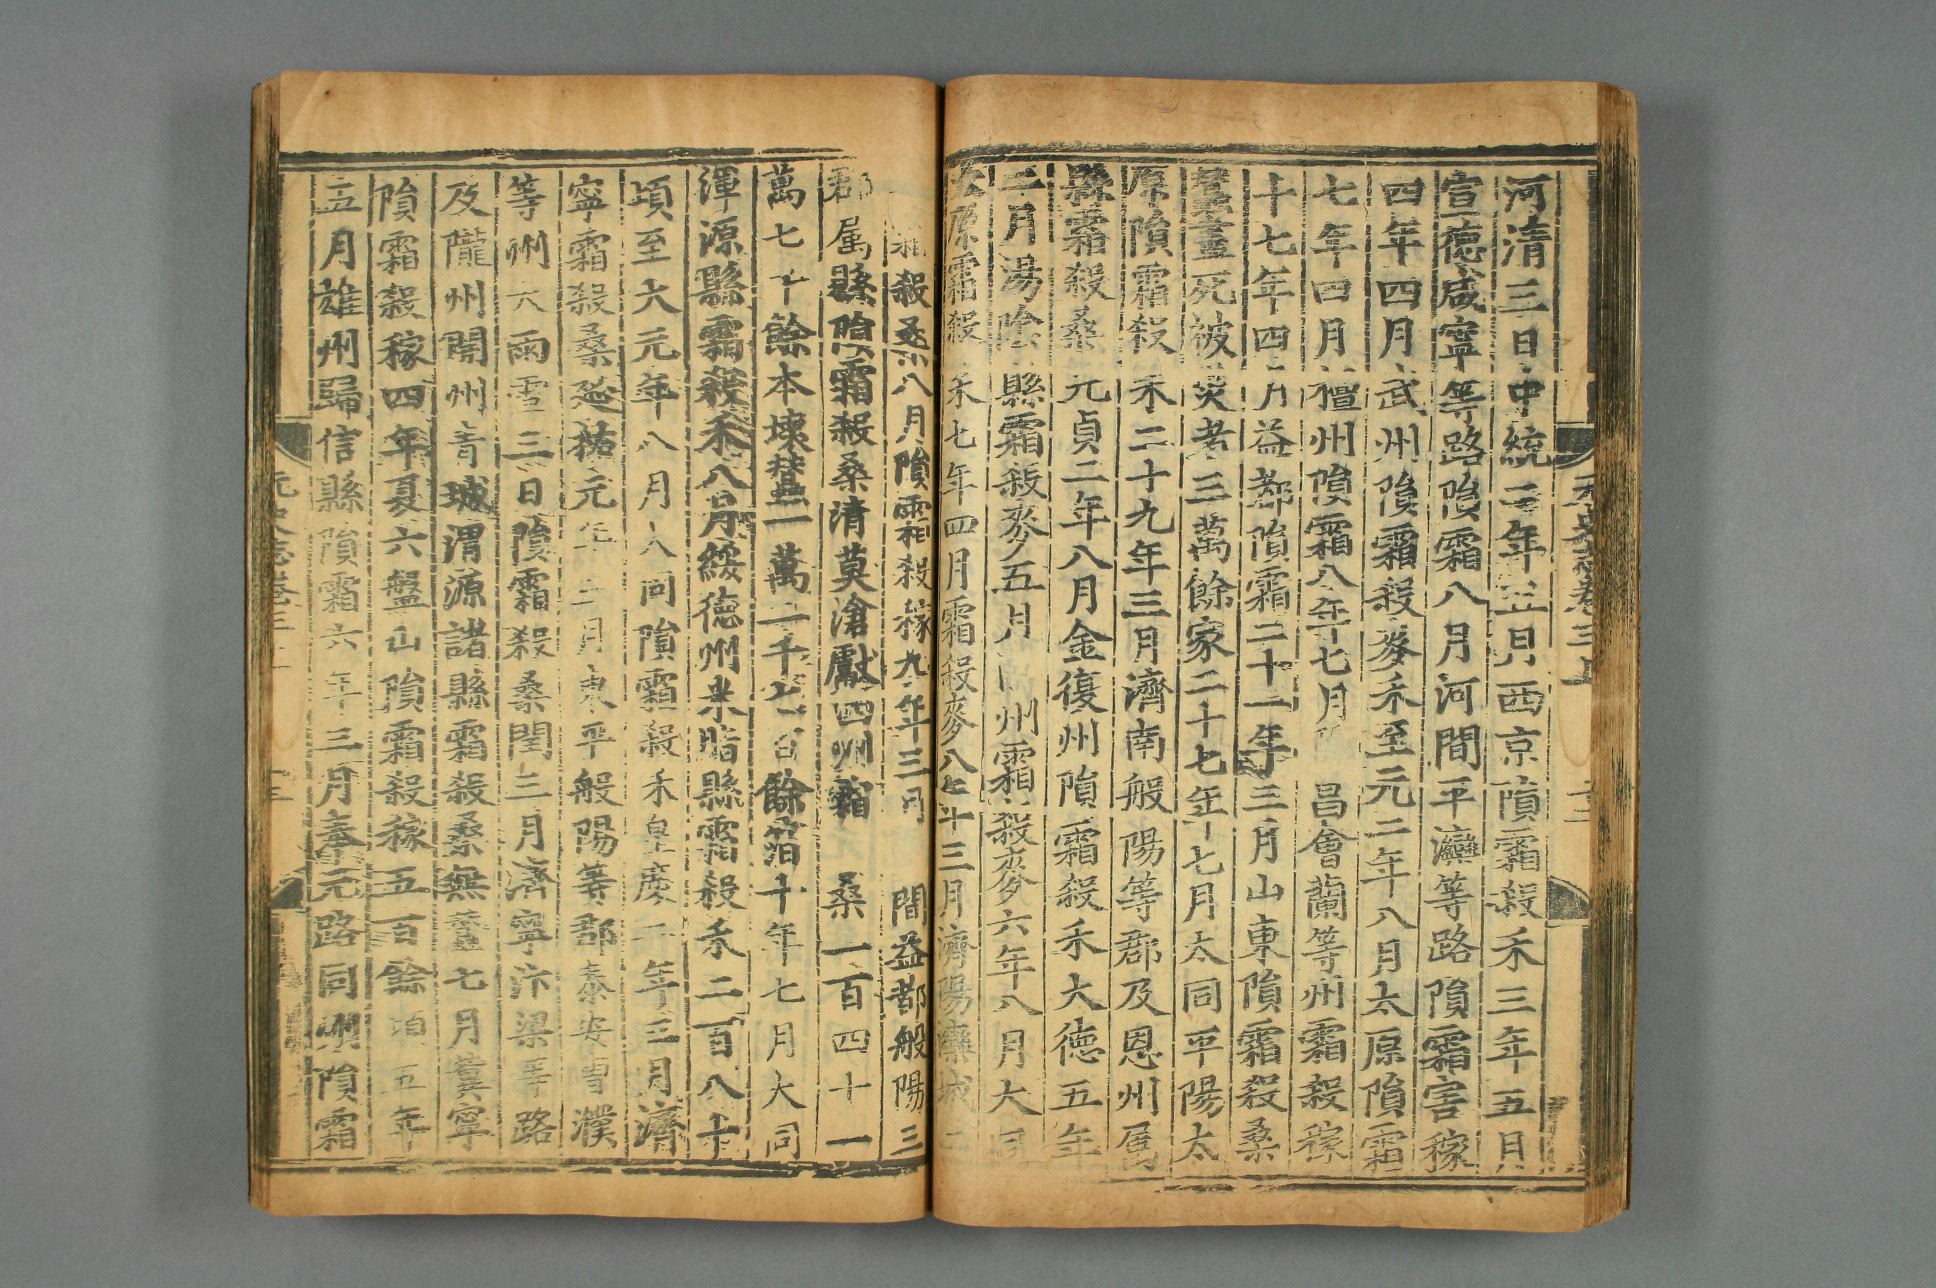 元史志卷三上
河清三日中統二年五月西京隕霜殺禾三年五月
宣德咸寧等路隕霜八月河間平灤等路隕霜害稼
四年四月武州隕霜殺麥禾至元二年八月太原隕霜
七年四月檀州隕霜八年七月 昌會蘭等州霜殺稼
十七年四月益都隕霜二十一年三月山東隕霜殺桑
蠶盡死被災者三萬餘家二十七年七月大同平陽太
原隕霜殺禾二十九年三月濟南般陽等郡及恩州屬
縣霜殺桑元貞二年八月金復州隕霜殺禾大德五年
三月湯陰縣霜殺麥五月 州霜殺麥六年八月大同
太原霜殺禾七年四月霜殺麥八年三月濟陽灤城二
霜殺桑八月隕霜殺稼九年三月 間益都般陽三
郡屬縣隕霜殺桑清莫滄獻四州霜 桑二百四十一
萬七千餘本壞蠶一萬二千七百餘箔十年七月大同
渾源縣霜殺禾八月綏德州米脂縣霜殺禾二百八十
頃至大元年八月大同隕霜殺禾皇慶二年三月濟
寧霜殺桑延祐元年三月東平般陽等郡泰安曹濮
等州大雨雪三日隕霜殺桑閏三月濟寧汴梁等路
及隴州開州青城渭源諸縣霜殺桑無蠶七月冀寧
隕霜殺稼四年夏六盤山隕霜殺稼五百餘頃五年
五月雄州歸信縣隕霜六年三月奉元路同州隕霜